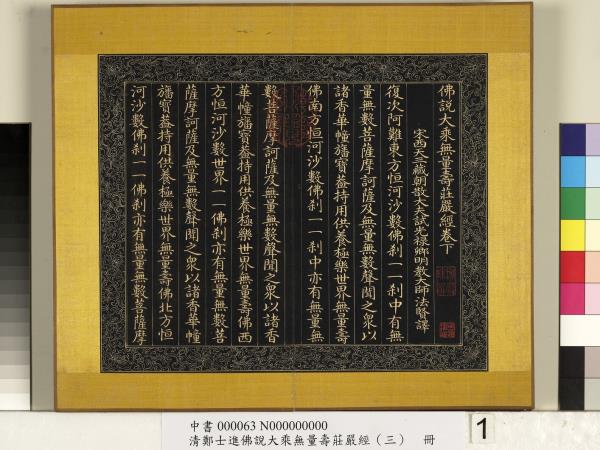 佛說大乘無量壽莊嚴經卷下
宋西天三藏朝散大夫試光祿卿明教大師法賢譯
復次阿難東方恒河沙數佛剎一一剎中有無
量無數菩薩摩訶薩及無量無數聲聞之衆以
諸香華幢旛寶葢持用供養極樂世界無量壽
佛南方恒河沙數佛剎一一剎中亦有無量無
數菩薩摩訶薩及無量無數聲聞之衆以諸香
華幢旛寶葢持用供養極樂世界無量壽佛西
方恒河沙數世界一一佛剎亦有無量無數菩
薩摩訶薩及無量無數聲聞之衆以諸香華幢
旛寶葢持用供養極樂世界無量壽佛北方恒
河沙數佛剎一一佛剎亦有無量無數菩薩摩
中書 000063 N000000000
清鄭士進佛說大乘無量壽莊嚴經（三） 冊
1